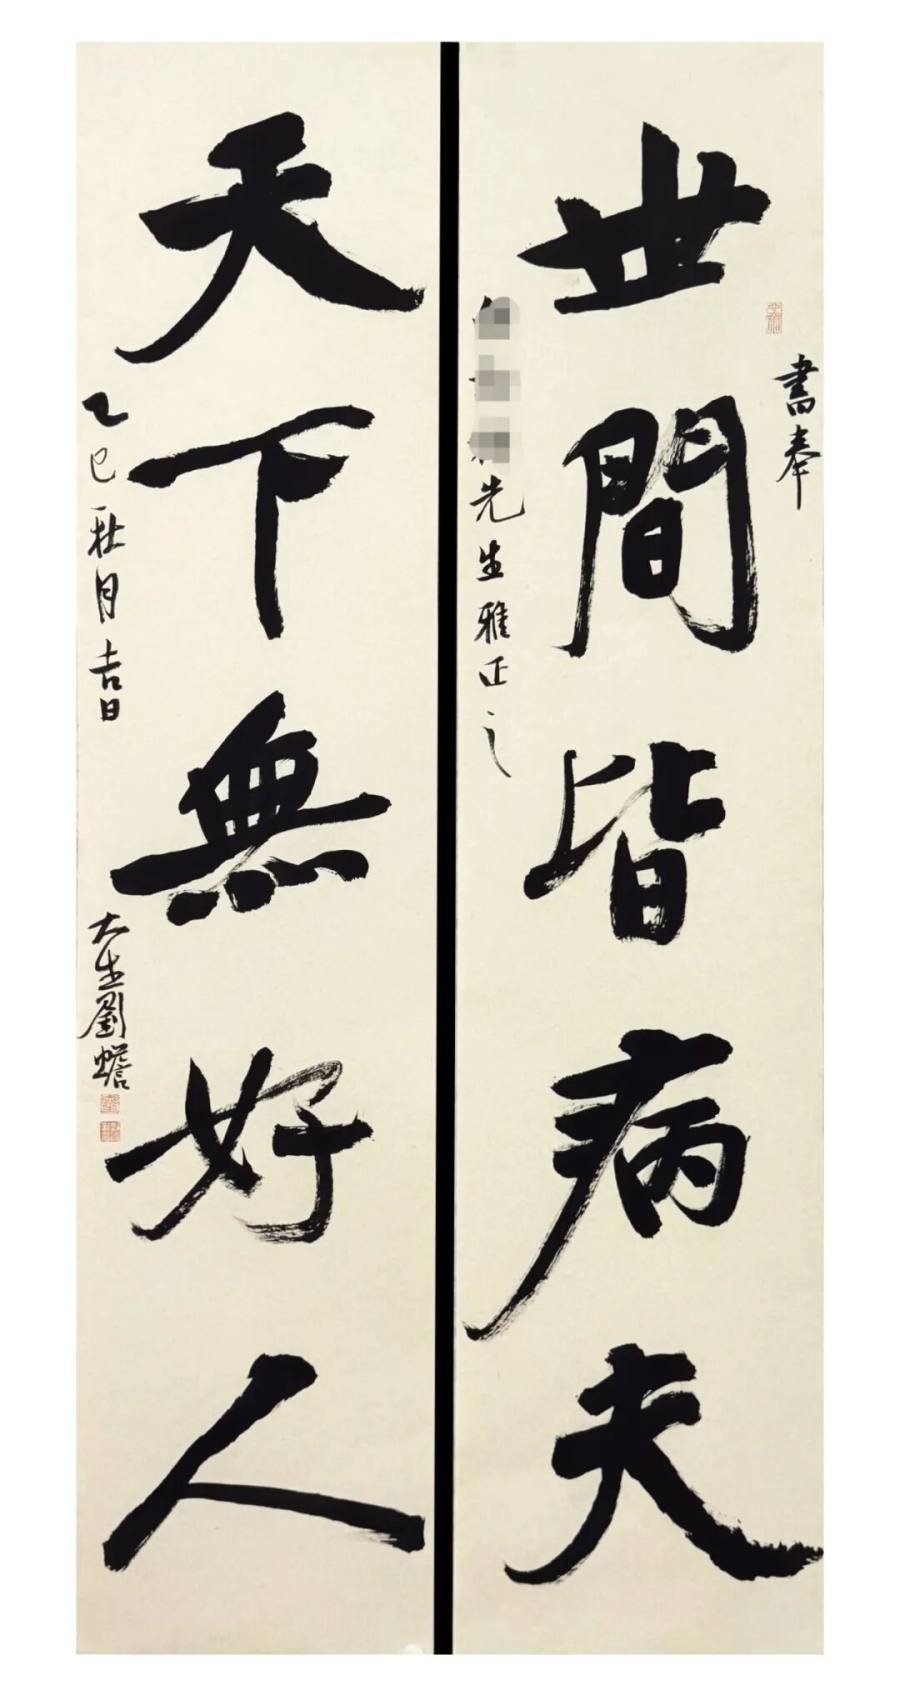 世間皆病夫
書奉
先生雅正之
天下無好人
乙巳秋月吉日
大生劉蟾